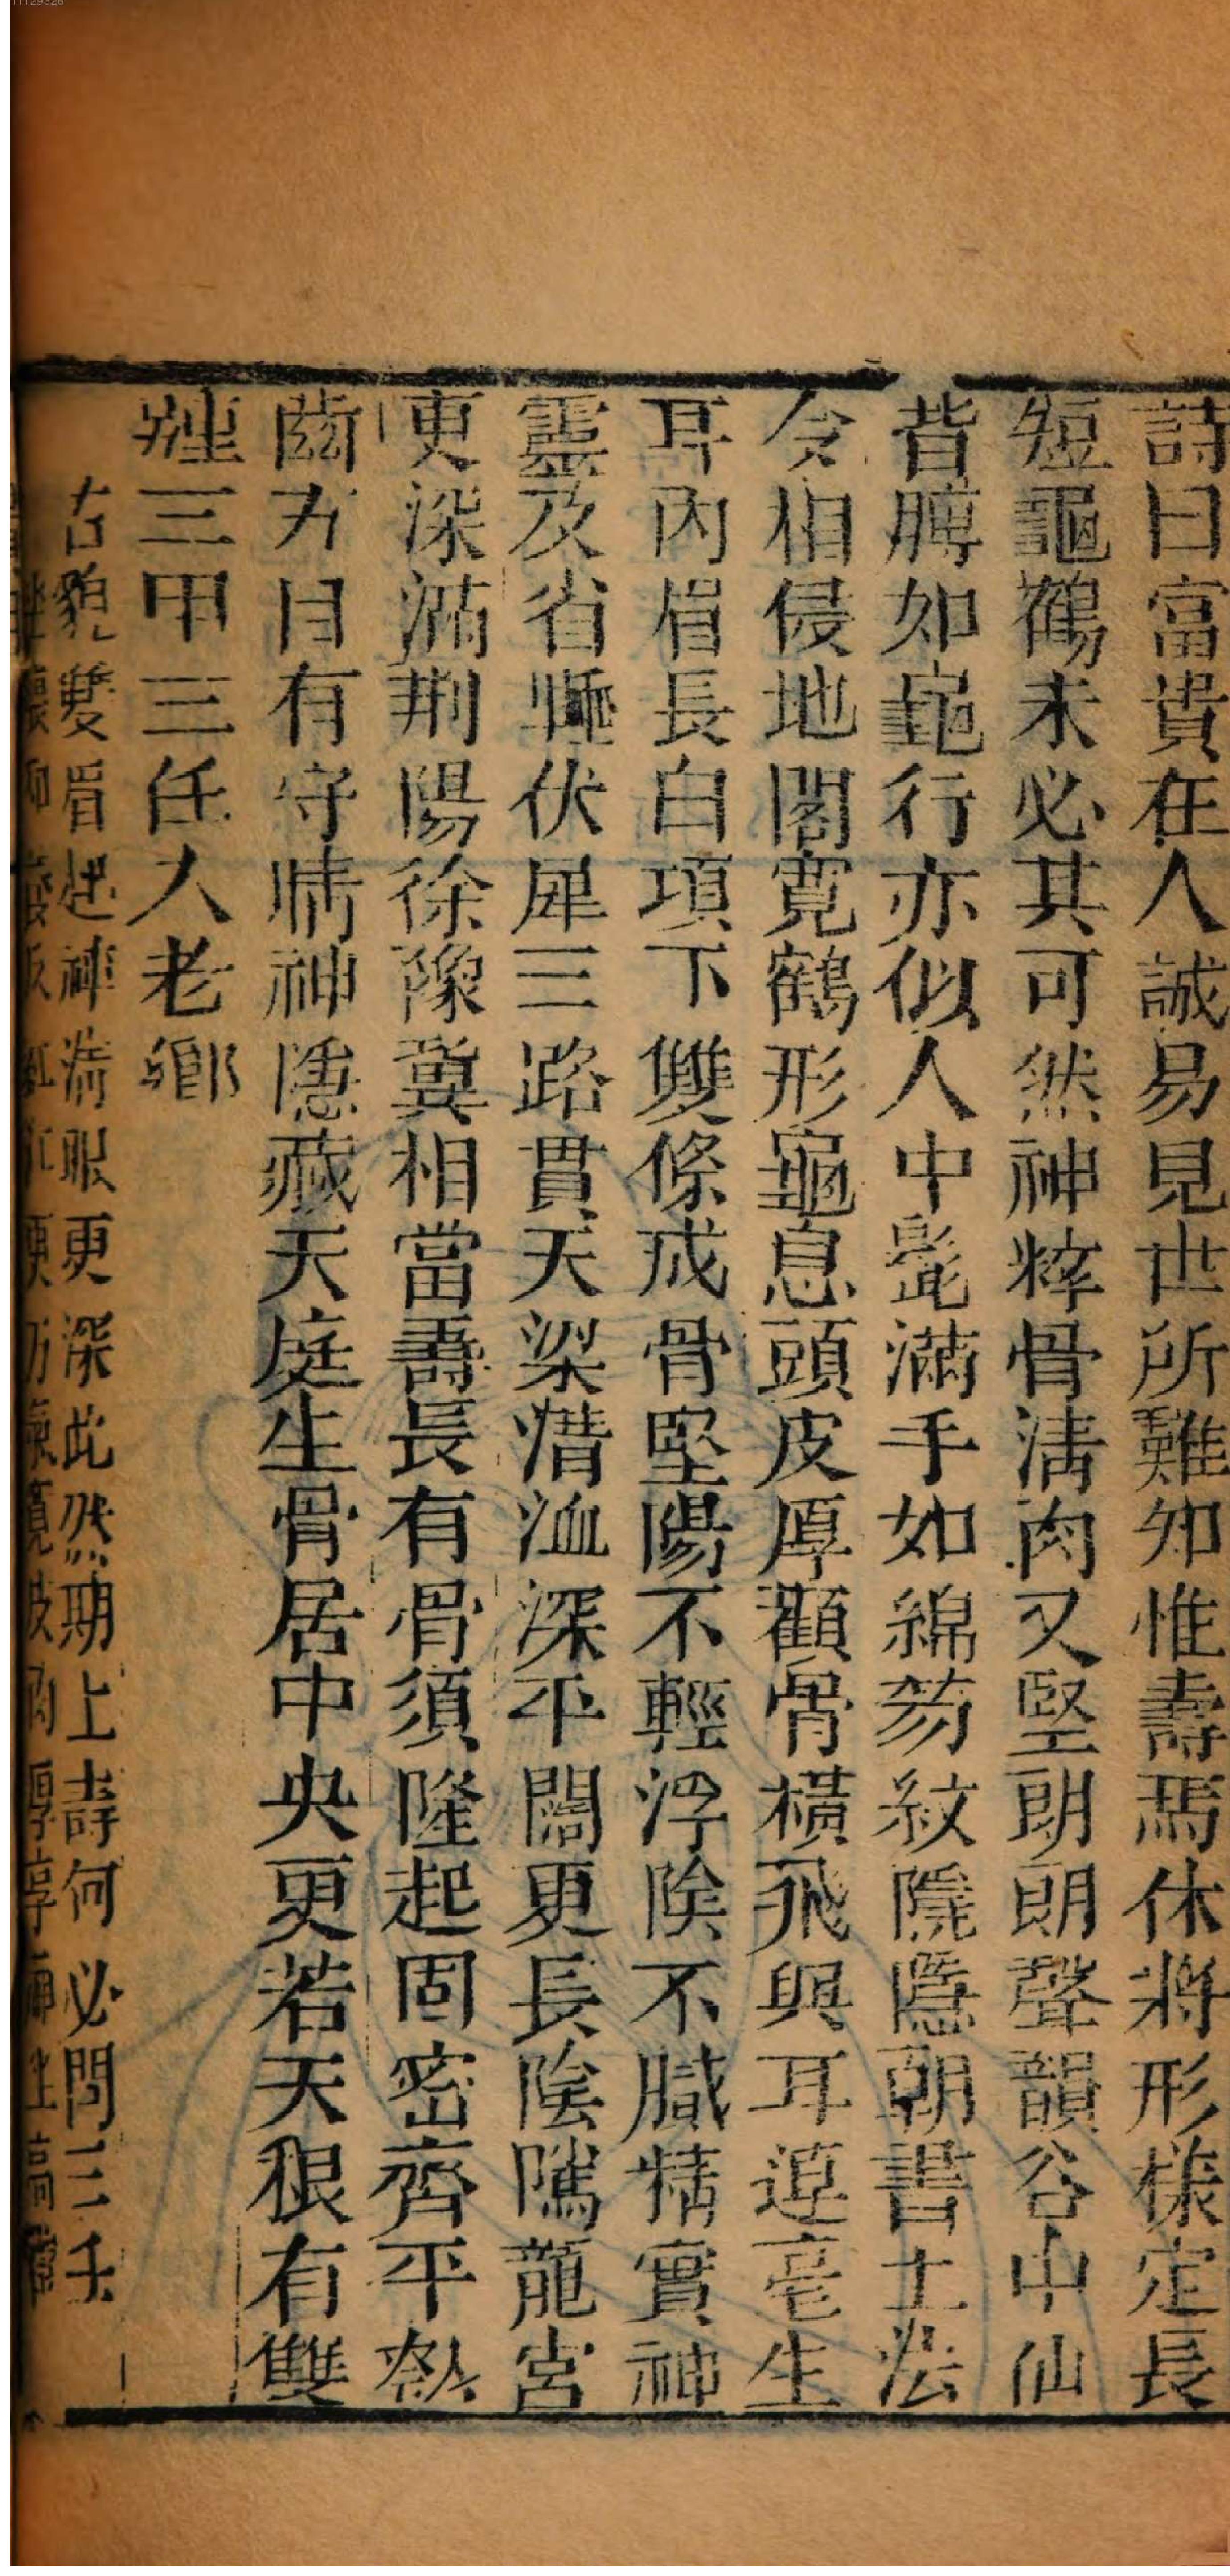 詩曰富貴在人誠易見世所難知惟壽焉休將形樣定長
短龜鶴未必其可然神粹骨清肉又堅朗朗聲韻谷中仙
背膊如龜行亦似人中髭滿手如綿笏紋隱隱朝書上法
令相侵地閣寬鶴形龜息頭皮厚顴骨橫飛與耳連毫生
耳內眉長白項下雙條成骨堅陽不輕浮陰不臟精實神
靈及省睡伏犀三路貫天梁潛洫深平闊更長陰隲龍宮
更深滿荆陽徐豫冀相當壽長有骨須隆起固密齊平
齒方目有守睛神隱藏天庭生骨居中央更若天根有雙
三甲三任人老鄉
古貌雙眉起神清眼更深此然期上壽何必問三壬